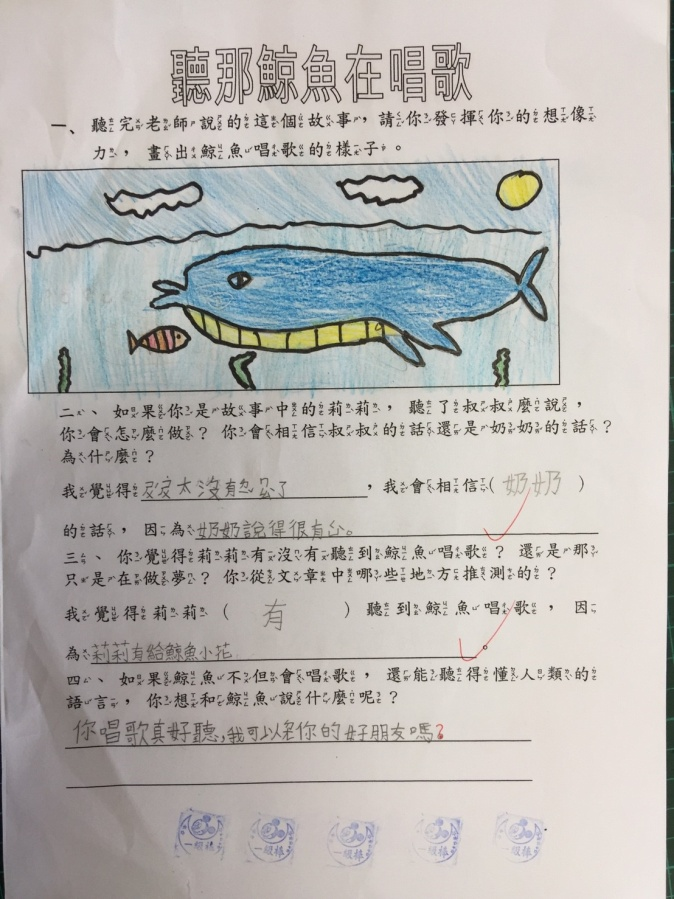 聽那鯨魚在唱歌
一、聽完老師說的這個故事，請你發揮你的想像
力，畫出鯨魚唱歌的樣子。
二、如果你是故事中的莉莉，聽了叔叔麼說，
你會怎麼做？你會相信叔叔的話還是奶奶的話？
為什麼？
我覺得叔叔太沒有愛心了，我會相信(奶奶)
的話，因為奶奶說得很有心。
三、你覺得莉莉有沒有聽到鯨魚唱歌？還是那
只是在做夢？你從文章中哪些地方推測的？
我覺得莉莉(有)聽到鯨魚唱歌，因
為莉莉有給鯨魚小花。
四、如果鯨魚不但會唱歌，還能聽得懂人類的
語言，你想和鯨魚說什麼呢？
你唱歌真好聽，我可以當你的好朋友嗎？
一級棒 一級棒 一級棒 一級棒 一級棒